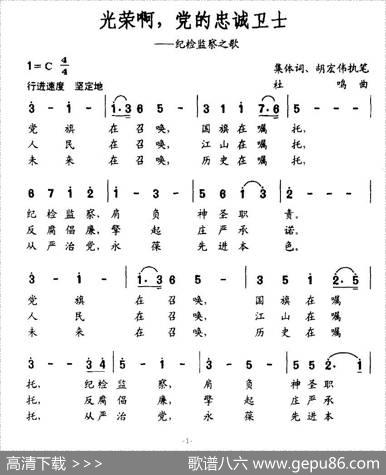 光荣啊，党的忠诚卫士
——纪检监察之歌
1=C 4/4
集体词、胡宏伟执笔
行进速度 坚定地
杜 鸣 曲
3 - 1 - | 1·3 6 5 - | 3 3 1 7·6 | 5 - - - |
党 旗 在召唤， 国旗在嘱托，
人 民 在召唤， 江山在嘱托，
未 来 在召唤， 历史在嘱托，
6 7 1 2 | 1 - 3 - | 5 6 1 3 | 2 - - - |
纪检监察，肩 负 神圣职 责。
反腐倡廉，擎 起 庄严承 诺。
从严治党，永 葆 先进本 色。
3 - 1 - | 1·3 6 5 - | 3 5 1 2·5 |
党 旗 在召唤， 国旗在嘱
人 民 在召唤， 江山在嘱
未 来 在召唤， 历史在嘱
3 - - 3 4 | 5 5 1 - | 3 - 5 - | 5 2 2·1 |
托， 纪检监察， 肩 负 神圣职
托， 反腐倡廉， 擎 起 庄严承
托， 从严治党， 永 葆 先进本
-1-
高清下载 >>>
歌谱八六 www.gepu86.com